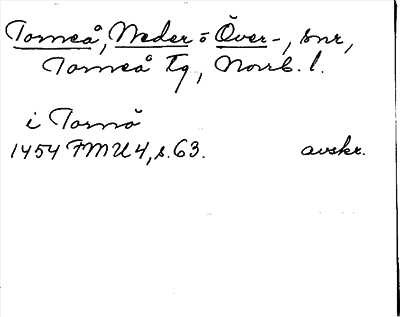 Torneå, Neder= Över-, snr,
Torneå tg, Norrb. l.
i Tornö
1454 FMU 4, s. 63. avskr.